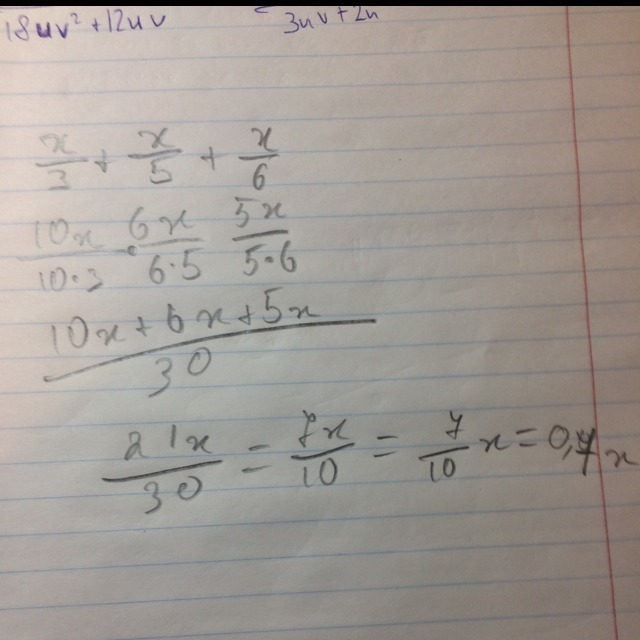 18uv² + 12uv 3uv + 2u
x/3 + x/5 + x/6
10x/10·3 · 6x/6·5 5x/5·6
10x + 6x + 5x/30
21x/30 = 7x/10 = 7/10 x = 0,7x